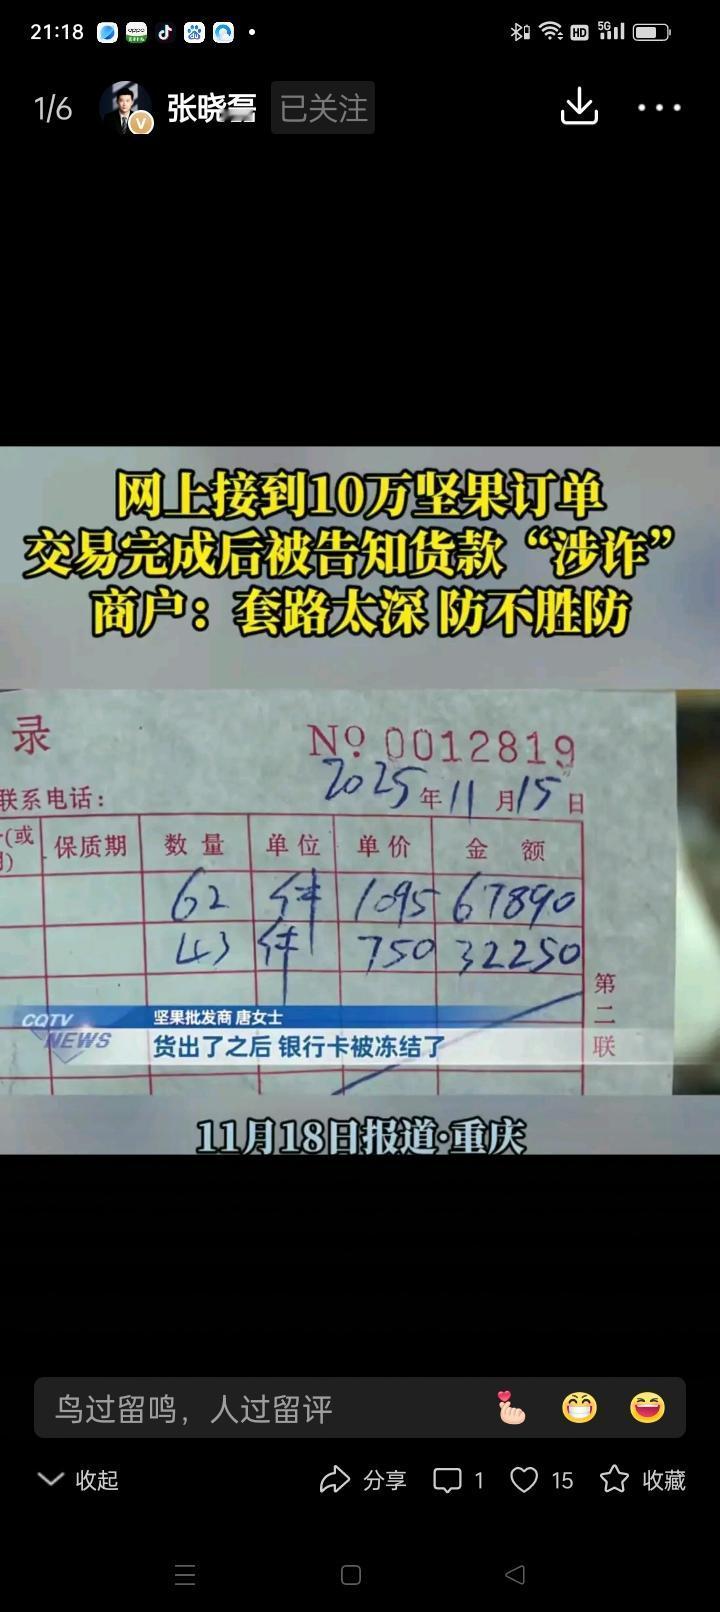 21:18
HD 5G
1/6 张晓磊 已关注
网上接到10万坚果订单
交易完成后被告知货款“涉诈”
商户：套路太深 防不胜防
录
№ 0012819
联系电话：
2025年11月15日
保质期 数量 单位 单价 金额
62 件 1095 67890
43 件 750 32250
第二联
CQTV NEWS
坚果批发商 唐女士
货出了之后 银行卡被冻结了
11月18日报道·重庆
鸟过留鸣，人过留评
收起 分享 1 15 收藏